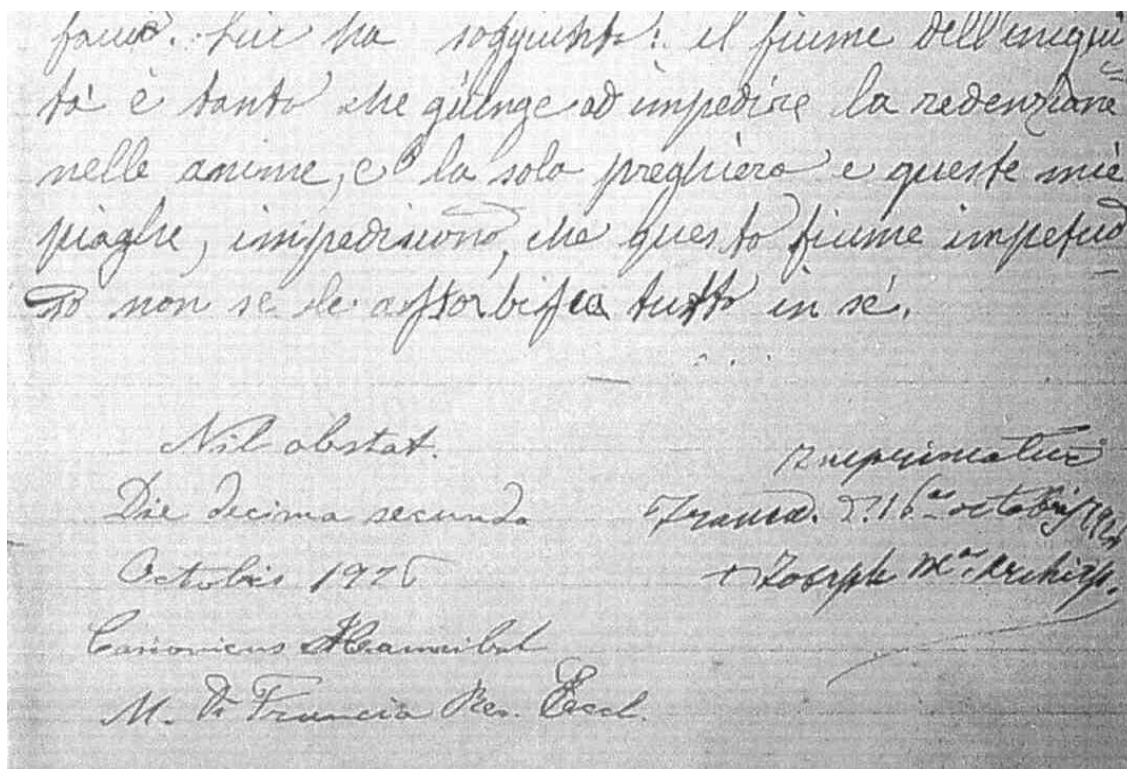 Lui ha soggiunto: il fiume dell'iniqui=
tà è tanto che giunge ad impedire la redenzione
nelle anime, e la sola preghiera e queste mie
piaghe, impediscono, che questo fiume impetuo=
so non se le assorbisca tutto in sé.
Nil obstat.
Die decima secunda
Octobris 1926
Canonicus Hannibal
M. Di Francia Rev. Eccl.
Imprimatur
D. 16 octobris
+ Joseph M. Archiep.